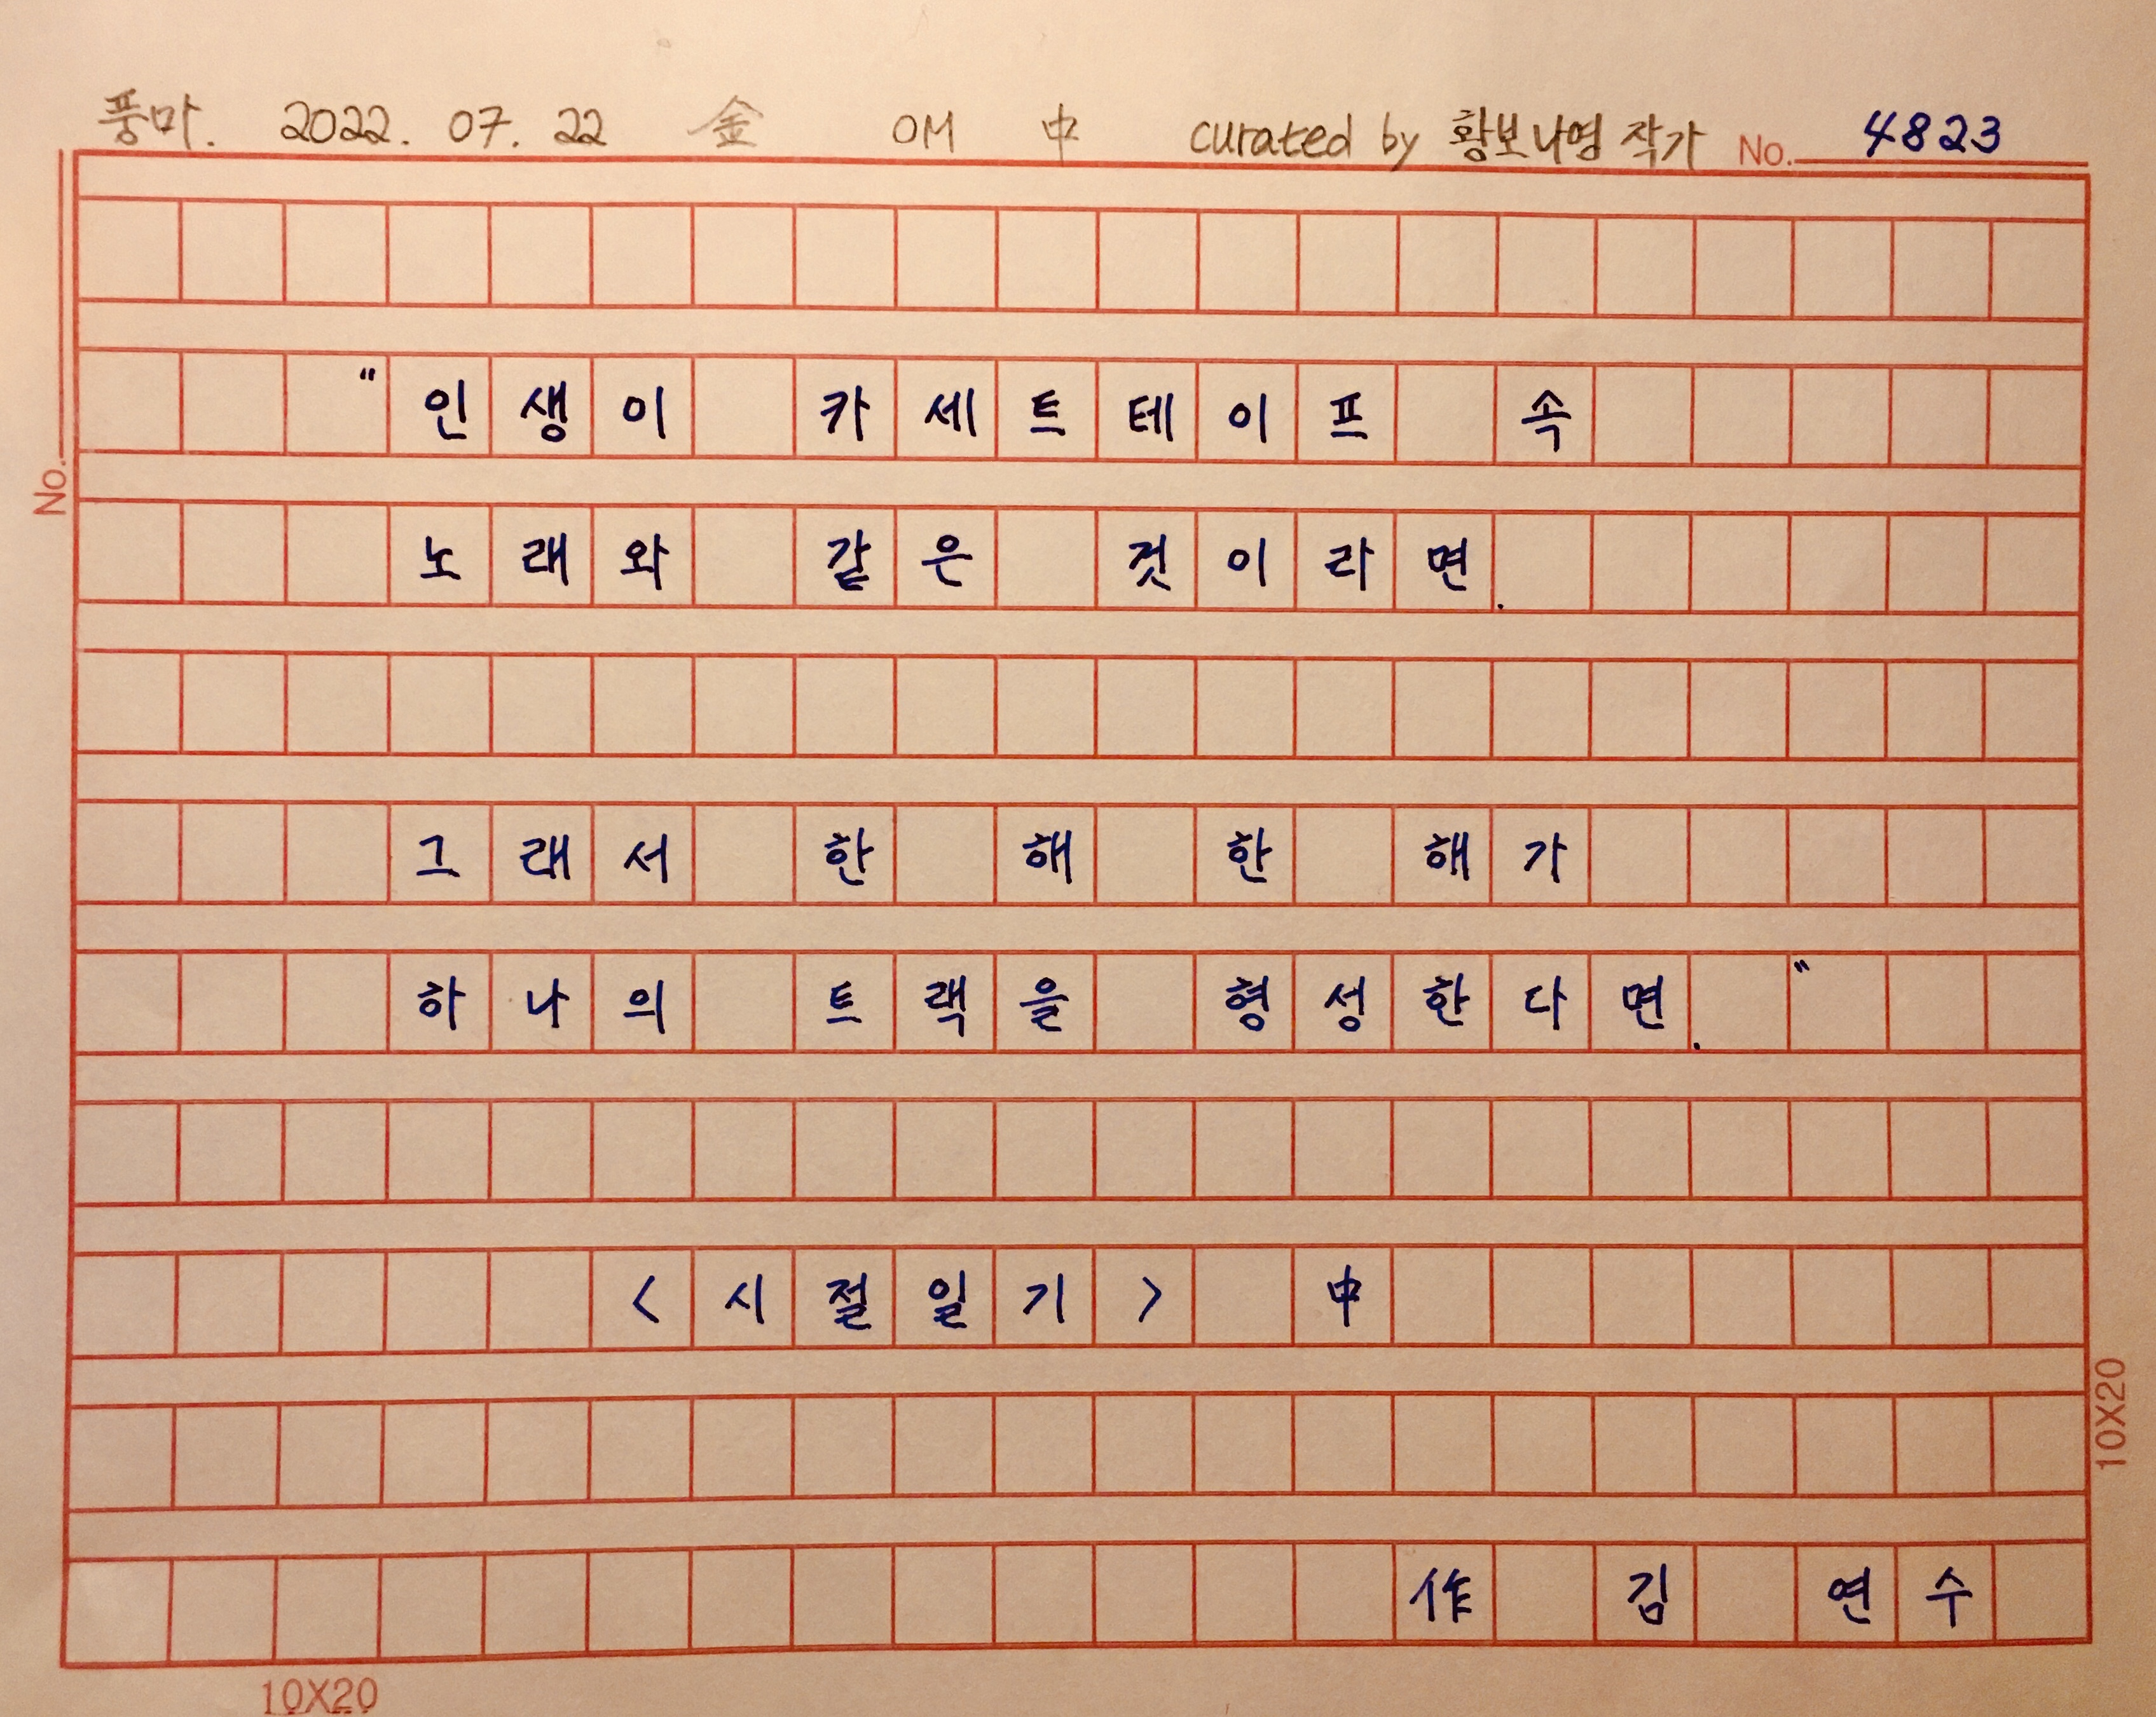 풍마. 2022. 07. 22 金 OM 中 curated by 황보나영 작가 No. 4823
No.
"인생이 카세트테이프 속
노래와 같은 것이라면.
그래서 한 해 한 해가
하나의 트랙을 형성한다면."
<시절일기> 中
作 김 연수
10X20
10X20